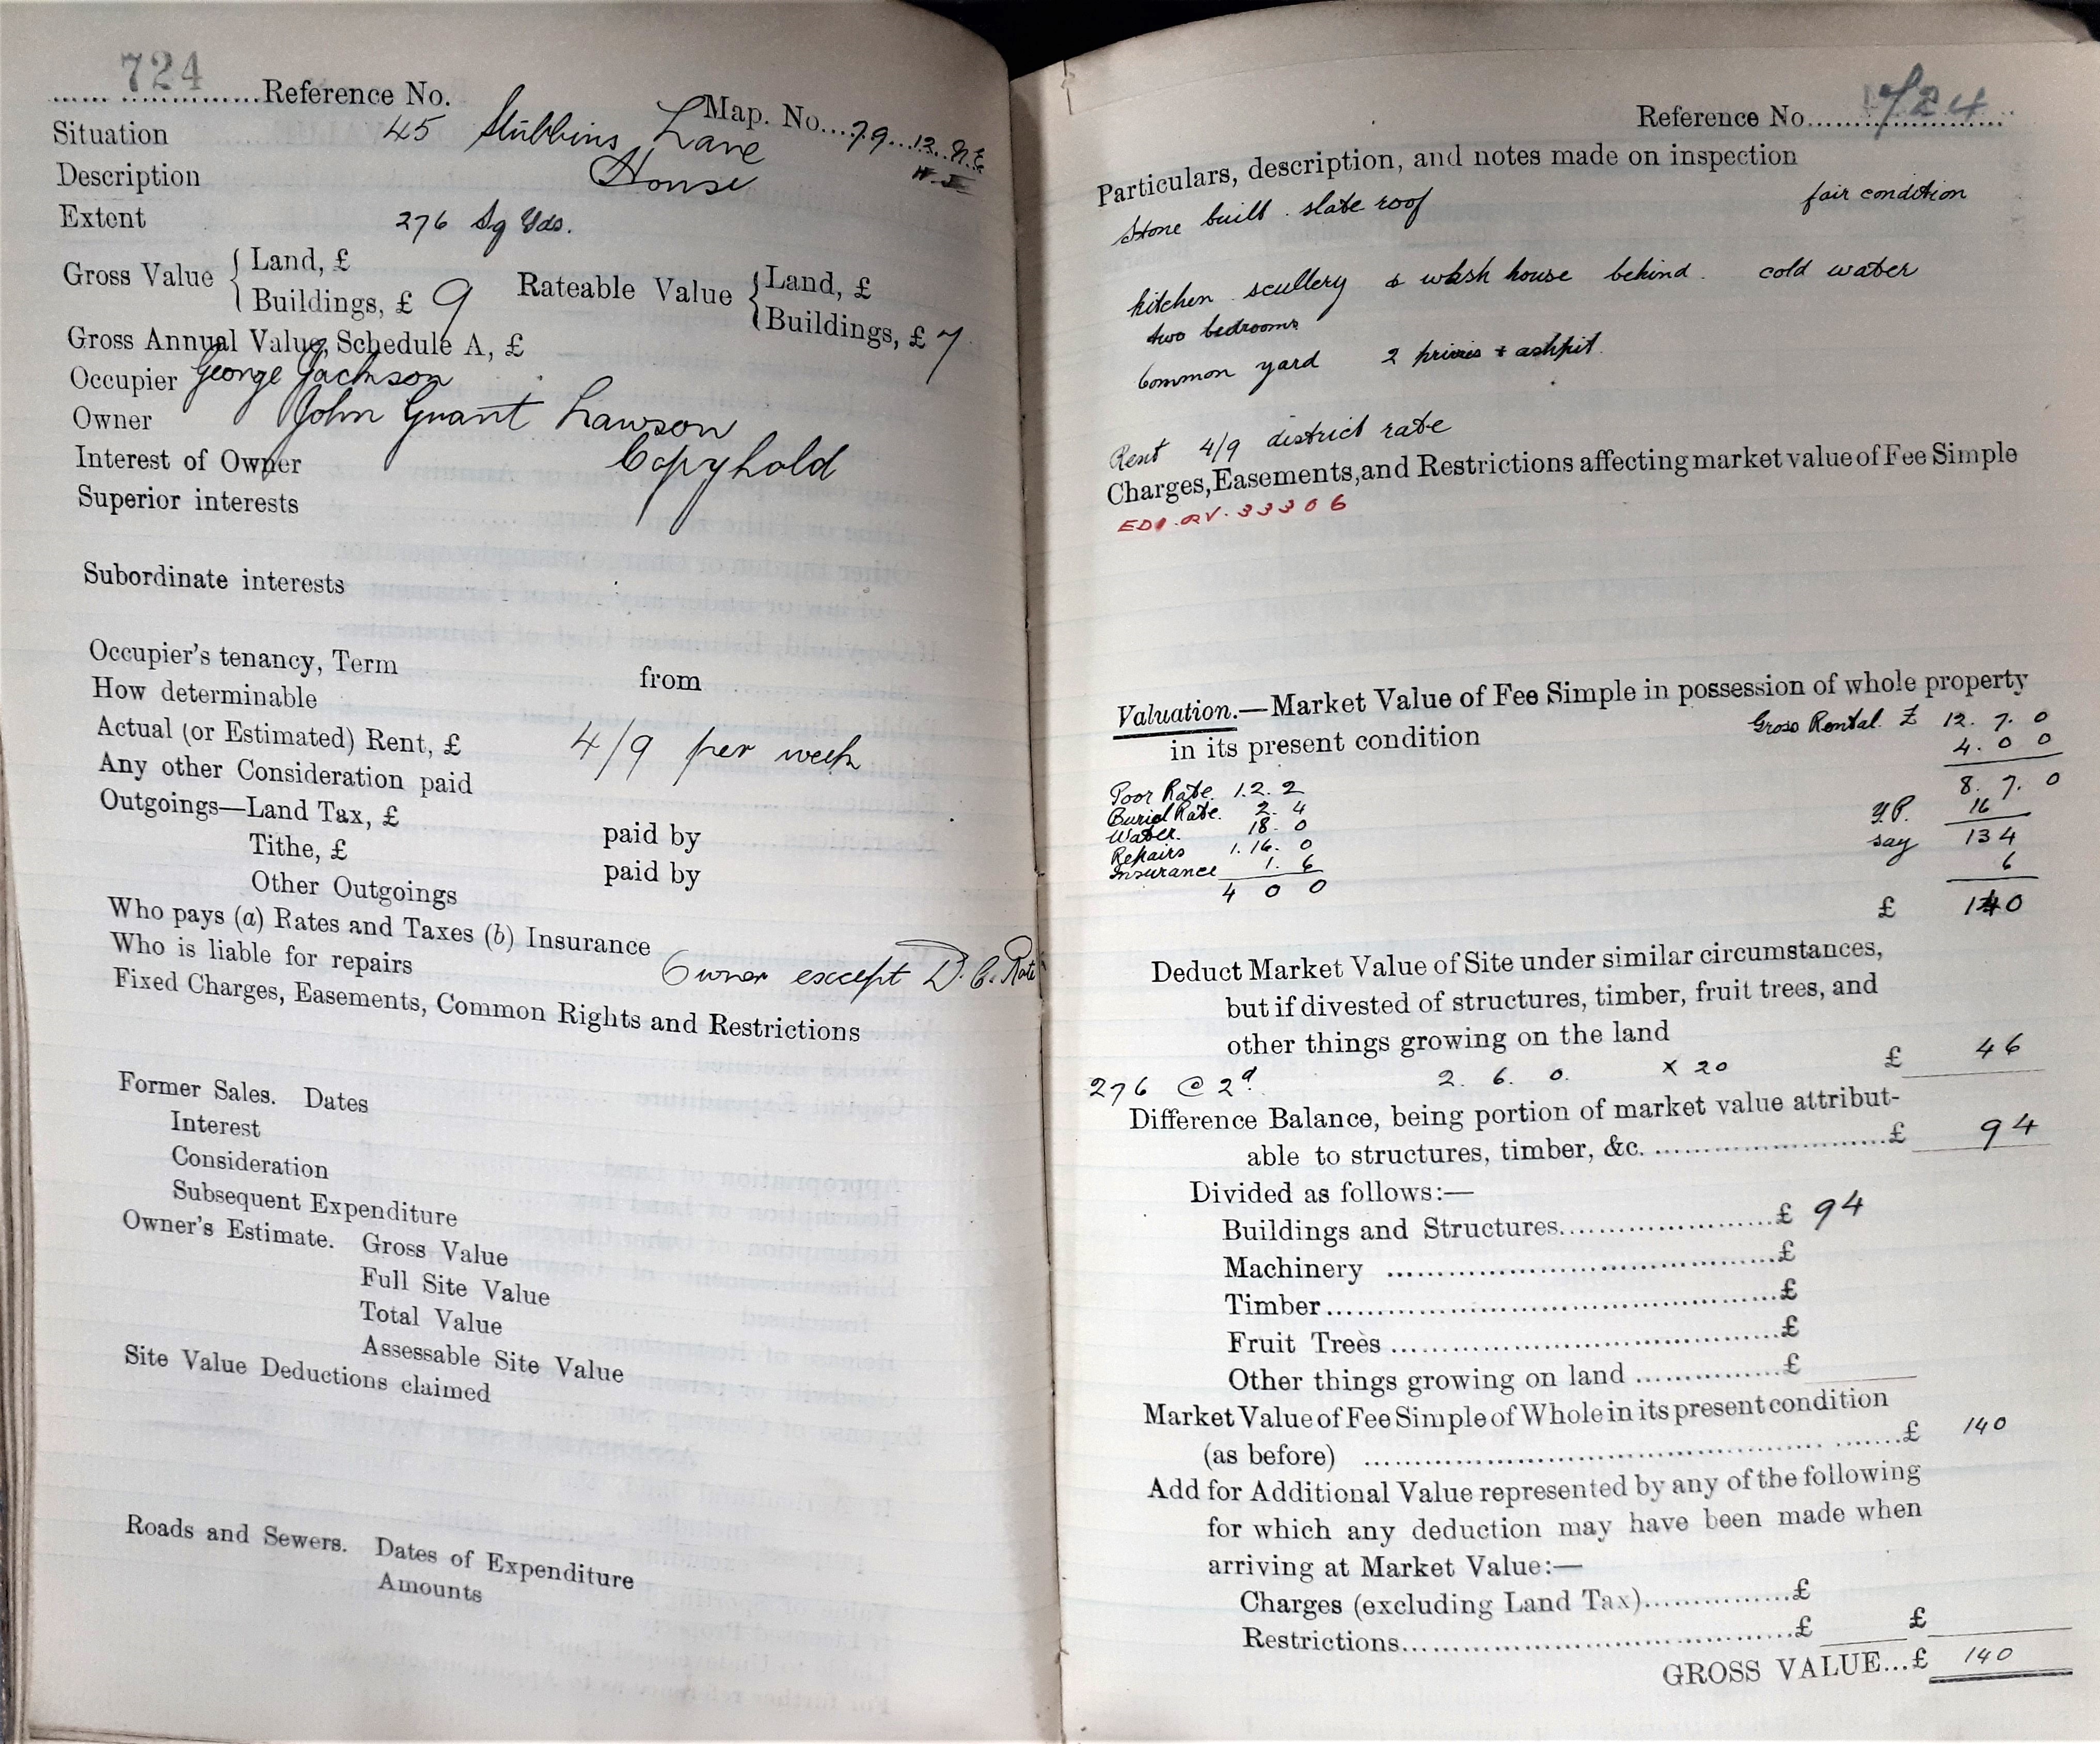 724
Reference No. Map. No. 79.12. N.E.
Situation 45 Stubbins Lane
Description House
Extent 276 Sq Yds.
Gross Value { Land, £ Rateable Value { Land, £
Buildings, £ 9 Buildings, £ 7
Gross Annual Value, Schedule A, £
Occupier George Jackson
Owner John Grant Lawson
Interest of Owner Copyhold
Superior interests
Subordinate interests
Occupier's tenancy, Term from
How determinable
Actual (or Estimated) Rent, £ 4/9 per week
Any other Consideration paid
Outgoings—Land Tax, £ paid by
Tithe, £ paid by
Other Outgoings
Who pays (a) Rates and Taxes (b) Insurance
Who is liable for repairs Owner except D. C. Rate
Fixed Charges, Easements, Common Rights and Restrictions
Former Sales. Dates
Interest
Consideration
Subsequent Expenditure
Owner's Estimate. Gross Value
Full Site Value
Total Value
Assessable Site Value
Site Value Deductions claimed
Roads and Sewers. Dates of Expenditure
Amounts
Reference No. 724
Particulars, description, and notes made on inspection
Stone built. slate roof fair condition
kitchen scullery & wash house behind. cold water
two bedrooms
Common yard 2 privies + ashpit.
Rent 4/9 district rate
Charges, Easements, and Restrictions affecting market value of Fee Simple
33306
Valuation.—Market Value of Fee Simple in possession of whole property
in its present condition Gross Rental £ 12. 7. 0
4. 0 0
8. 7. 0
Y.P. 16
say 134
6
£ 140
Poor Rate. 1.2.2
Burial Rate. 2. 4
Water. 18. 0
Repairs 1.16. 0
Insurance 1. 6
4 0 0
Deduct Market Value of Site under similar circumstances,
but if divested of structures, timber, fruit trees, and
other things growing on the land £ 46
276 @ 2d. 2. 6. 0. x 20
Difference Balance, being portion of market value attribut-
able to structures, timber, &c. £ 94
Divided as follows:—
Buildings and Structures £ 94
Machinery £
Timber £
Fruit Trees £
Other things growing on land £
Market Value of Fee Simple of Whole in its present condition
(as before) £ 140
Add for Additional Value represented by any of the following
for which any deduction may have been made when
arriving at Market Value:—
Charges (excluding Land Tax) £
Restrictions £ £
GROSS VALUE...£ 140